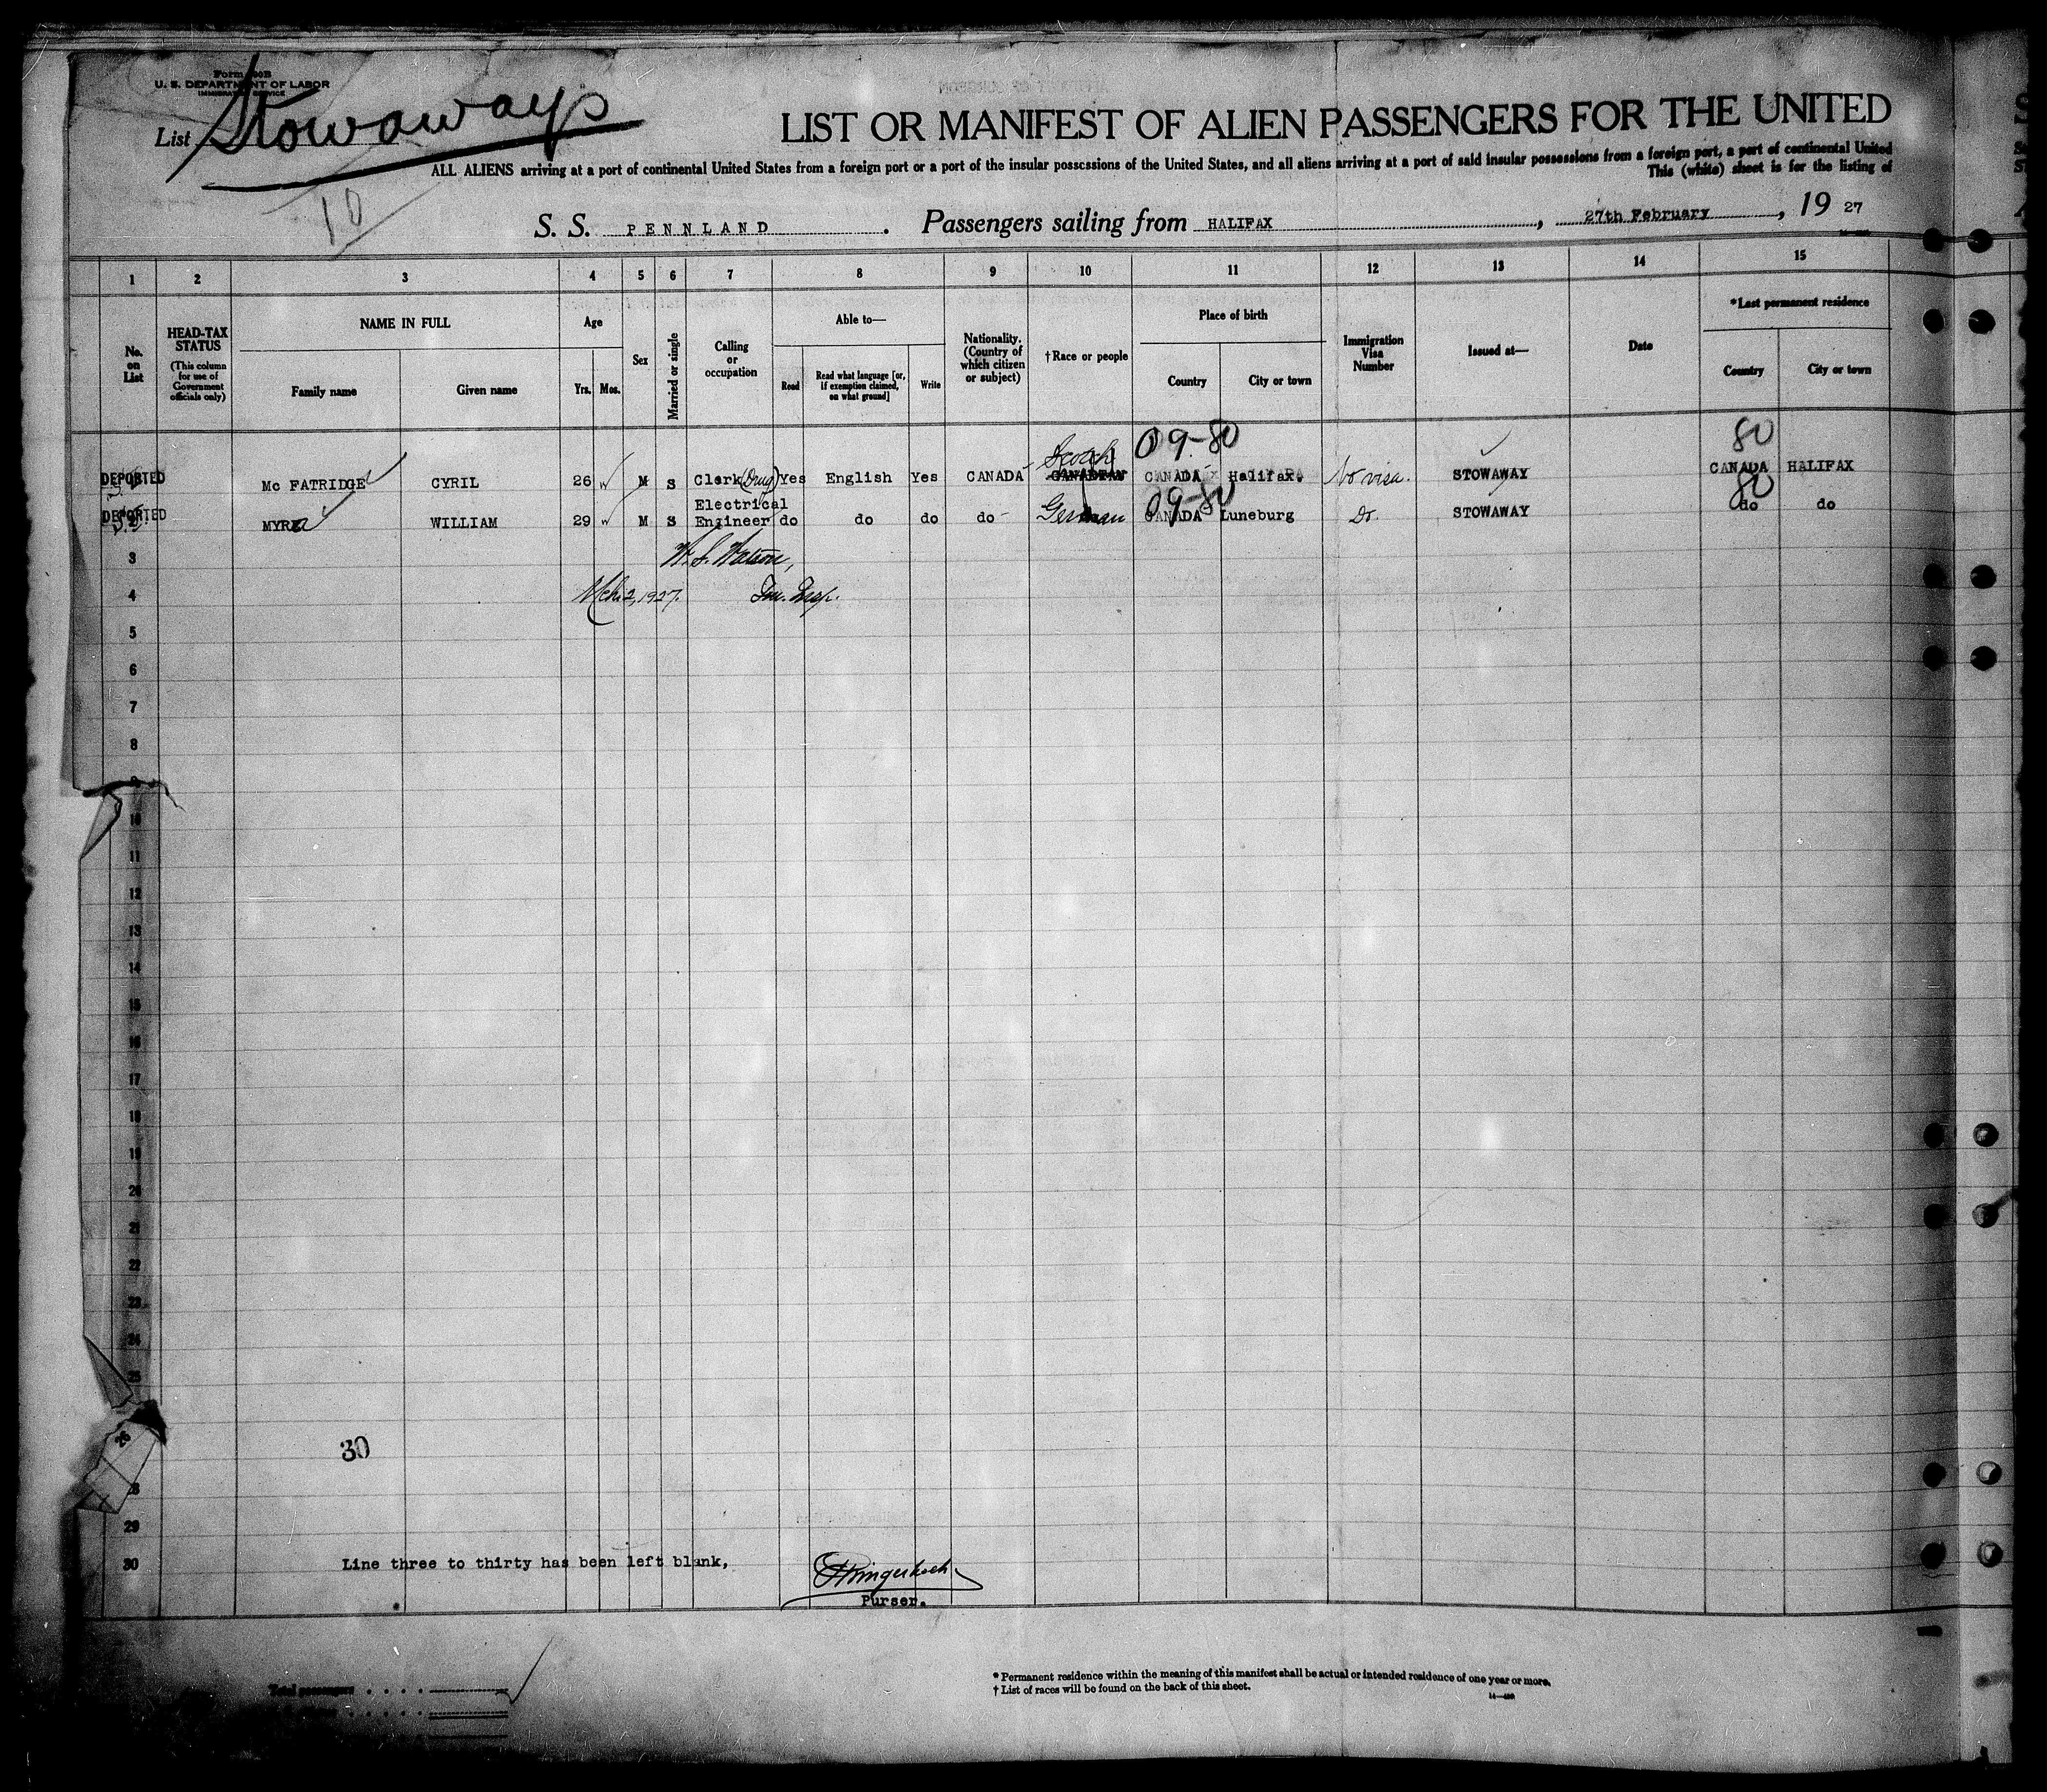 Form 500B
U. S. DEPARTMENT OF LABOR
IMMIGRATION SERVICE
List Stowaways
10
LIST OR MANIFEST OF ALIEN PASSENGERS FOR THE UNITED
ALL ALIENS arriving at a port of continental United States from a foreign port or a port of the insular possessions of the United States, and all aliens arriving at a port of said insular possessions from a foreign port, a part of continental United
This (white) sheet is for the listing of
S. S. PENNLAND . Passengers sailing from HALIFAX , 27th February , 19 27
1 2 3 4 5 6 7 8 9 10 11 12 13 14 15
No. on List
HEAD-TAX STATUS
(This column for use of Government officials only)
NAME IN FULL
Family name
Given name
Age
Yrs. Mos.
Sex
Married or single
Calling or occupation
Able to—
Read
Read what language [or, if exemption claimed, on what ground]
Write
Nationality. (Country of which citizen or subject)
†Race or people
Place of birth
Country
City or town
Immigration Visa Number
Issued at—
Date
*Last permanent residence
Country
City or town
Scotch 09-80 80
DEPORTED Mc FATRIDGE CYRIL 26 M S Clerk (Drug) Yes English Yes CANADA CANADIAN CANADA Halifax. No visa. STOWAWAY CANADA HALIFAX
09-80 80
DEPORTED MYRA WILLIAM 29 M S Electrical Engineer do do do do German CANADA Luneburg Do. STOWAWAY do do
3 W. S. Watson,
4 Mch. 2, 1927. Im. Insp.
5
6
7
8
9
10
11
12
13
14
15
16
17
18
19
20
21
22
23
24
25
26
30
28
29
30 Line three to thirty has been left blank,
Purser.
Total passengers
* Permanent residence within the meaning of this manifest shall be actual or intended residence of one year or more.
† List of races will be found on the back of this sheet.